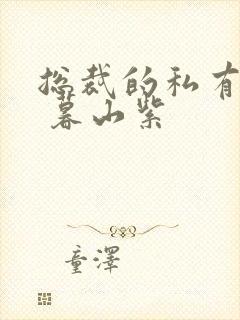 总裁的私有
暮山紫
童泽